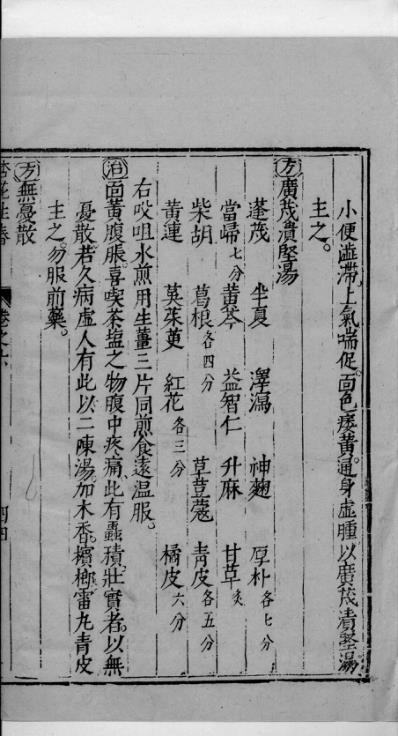 小便澁滯上氣喘促面色痿黃通身虛腫以廣茂潰堅湯
主之。
方廣茂潰堅湯
蓬茂 半夏 澤瀉 神麯 厚朴各七分
當歸七分 黃芩 益智仁 升麻 甘草炙
柴胡 葛根各四分 草荳蔻 青皮各五分
黃連 茱萸 紅花各三分 橘皮六分
右㕮咀水煎用生薑三片同煎食遠温服。
治面黃腹脹喜喫茶塩之物腹中疼痛此有蟲積壯實者以無
憂散若久病虛人有此以二陳湯加木香檳榔雷丸青皮
主之。勿服前藥。
方無憂散
卷之六